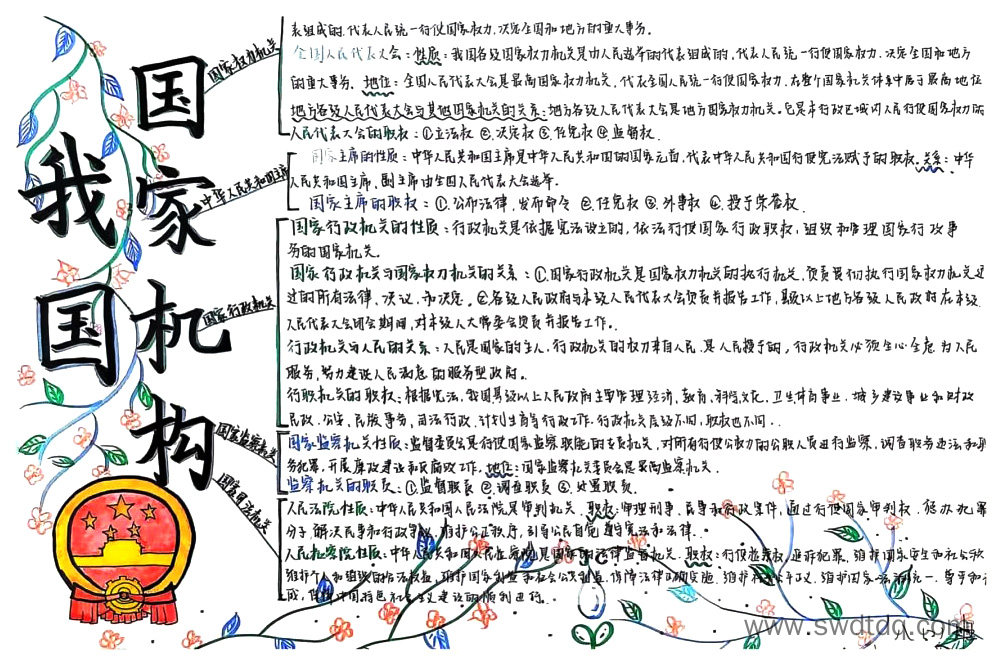 我国
国家机构
国家权力机关
表组成的,代表人民统一行使国家权力,决定全国和地方的重大事务。
全国人民代表大会:性质:我国各级国家权力机关是由人民选举的代表组成的,代表人民统一行使国家权力,决定全国和地方
的重大事务。地位:全国人民代表大会是最高国家权力机关,代表全国人民统一行使国家权力,在整个国家机关体系中居于最高地位
地方各级人民代表大会与其他国家机关的关系:地方各级人民代表大会是地方国家权力机关。它是本行政区域内人民行使国家权力的
人民代表大会的职权:①立法权 ②决定权 ③任免权 ④监督权.
中华人民共和国主席
国家主席的性质:中华人民共和国主席是中华人民共和国的国家元首,代表中华人民共和国行使宪法赋予的职权.关系:中华
人民共和国主席、副主席由全国人民代表大会选举.
国家主席的职权:①公布法律,发布命令 ②任免权 ③外事权 ④授予荣誉权.
国家行政机关
国家行政机关的性质:行政机关是依据宪法设立的,依法行使国家行政职权,组织和管理国家行政事
务的国家机关.
国家行政机关与国家权力机关的关系:①国家行政机关是国家权力机关的执行机关,负责贯彻执行国家权力机关通
过的所有法律、决议,和决定。②各级人民政府与本级人民代表大会负责并报告工作,县级以上地方各级人民政府在本级
人民代表大会闭会期间,对本级人大常委会负责并报告工作。
行政机关与人民的关系:人民是国家的主人,行政机关的权力来自人民,是人民授予的,行政机关必须全心全意为人民
服务,努力建设人民满意的服务型政府.
行政机关的职权:根据宪法,我国县级以上人民政府主要管理经济、教育、科学、文化、卫生体育事业、城乡建设事业和财政
民政、公安、民族事务、司法行政、计划生育等行政工作.行政机关层级不同,职权也不同.
国家监察机关
国家监察机关性质:监督委员会是行使国家监察职能的专责机关,对所有行使公权力的公职人员进行监察,调查职务违法和职
务犯罪,开展廉政建设和反腐败工作.地位:国家监察机关委员会是最高监察机关.
监察机关的职责:①监督职责 ②调查职责 ③处置职责.
国家司法机关
人民法院性质:中华人民共和国人民法院是审判机关.职权:审理刑事、民事和行政案件,通过行使国家审判权,惩办犯罪
分子,解决民事和行政争议,维护公正秩序,引导公民自觉遵守宪法和法律.
人民检察院性质:中华人民共和国人民检察院是国家的法律监督机关.职权:行使检察权,追诉犯罪,维护国家安全和社会秩
维护个人和组织的合法权益,维护国家利益和社会公共利益,保障法律正确实施,维护社会公平正义,维护国家法制统一、尊严和
威,保障中国特色社会主义建设的顺利进行.
www.swdtdq.com